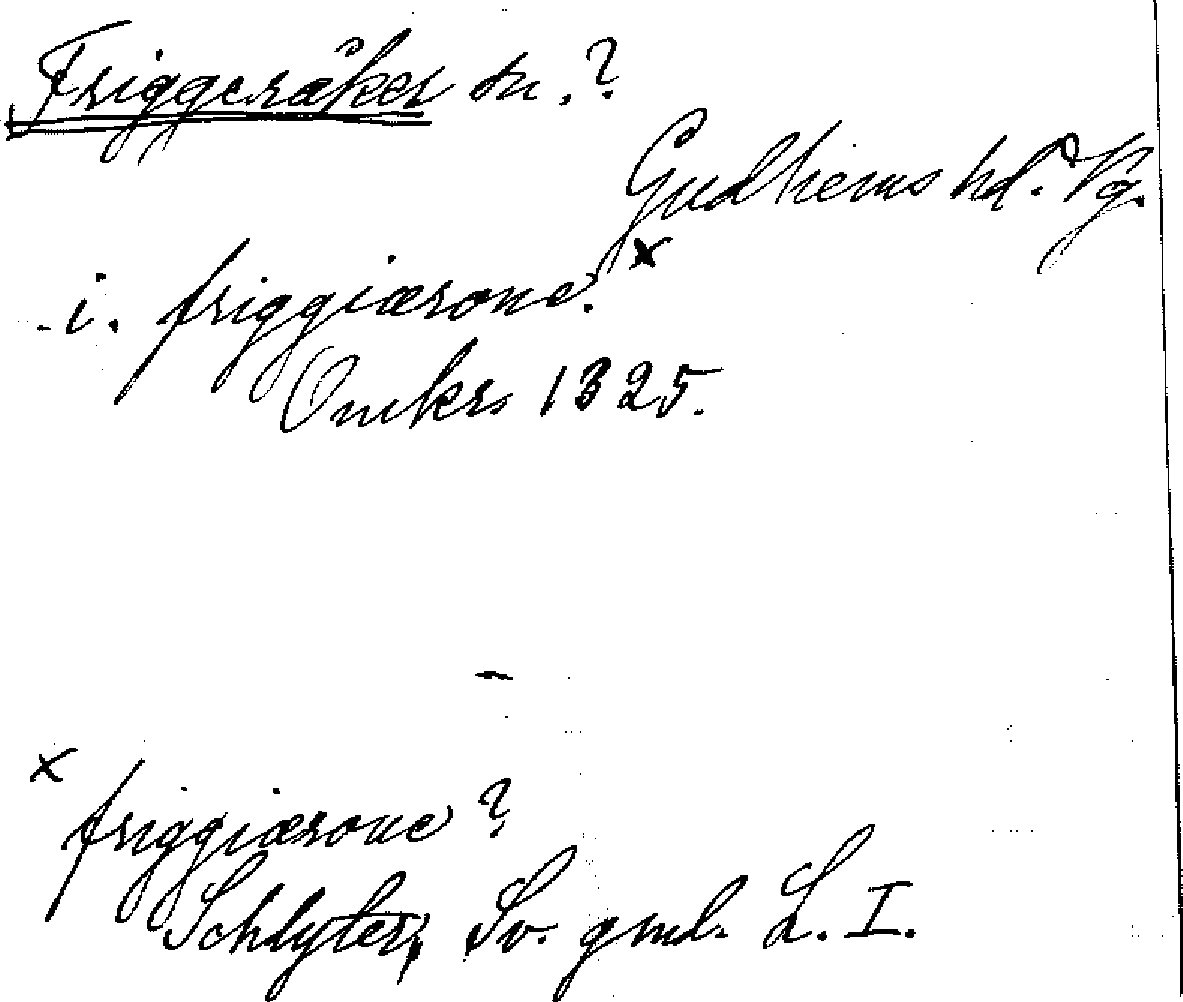 Friggeråker sn.?
Gudhems hd. Vg.
i. friggiærone.x
Omkr. 1325.
x friggiæroue?
Schlyter, Sv. gml. L. I.